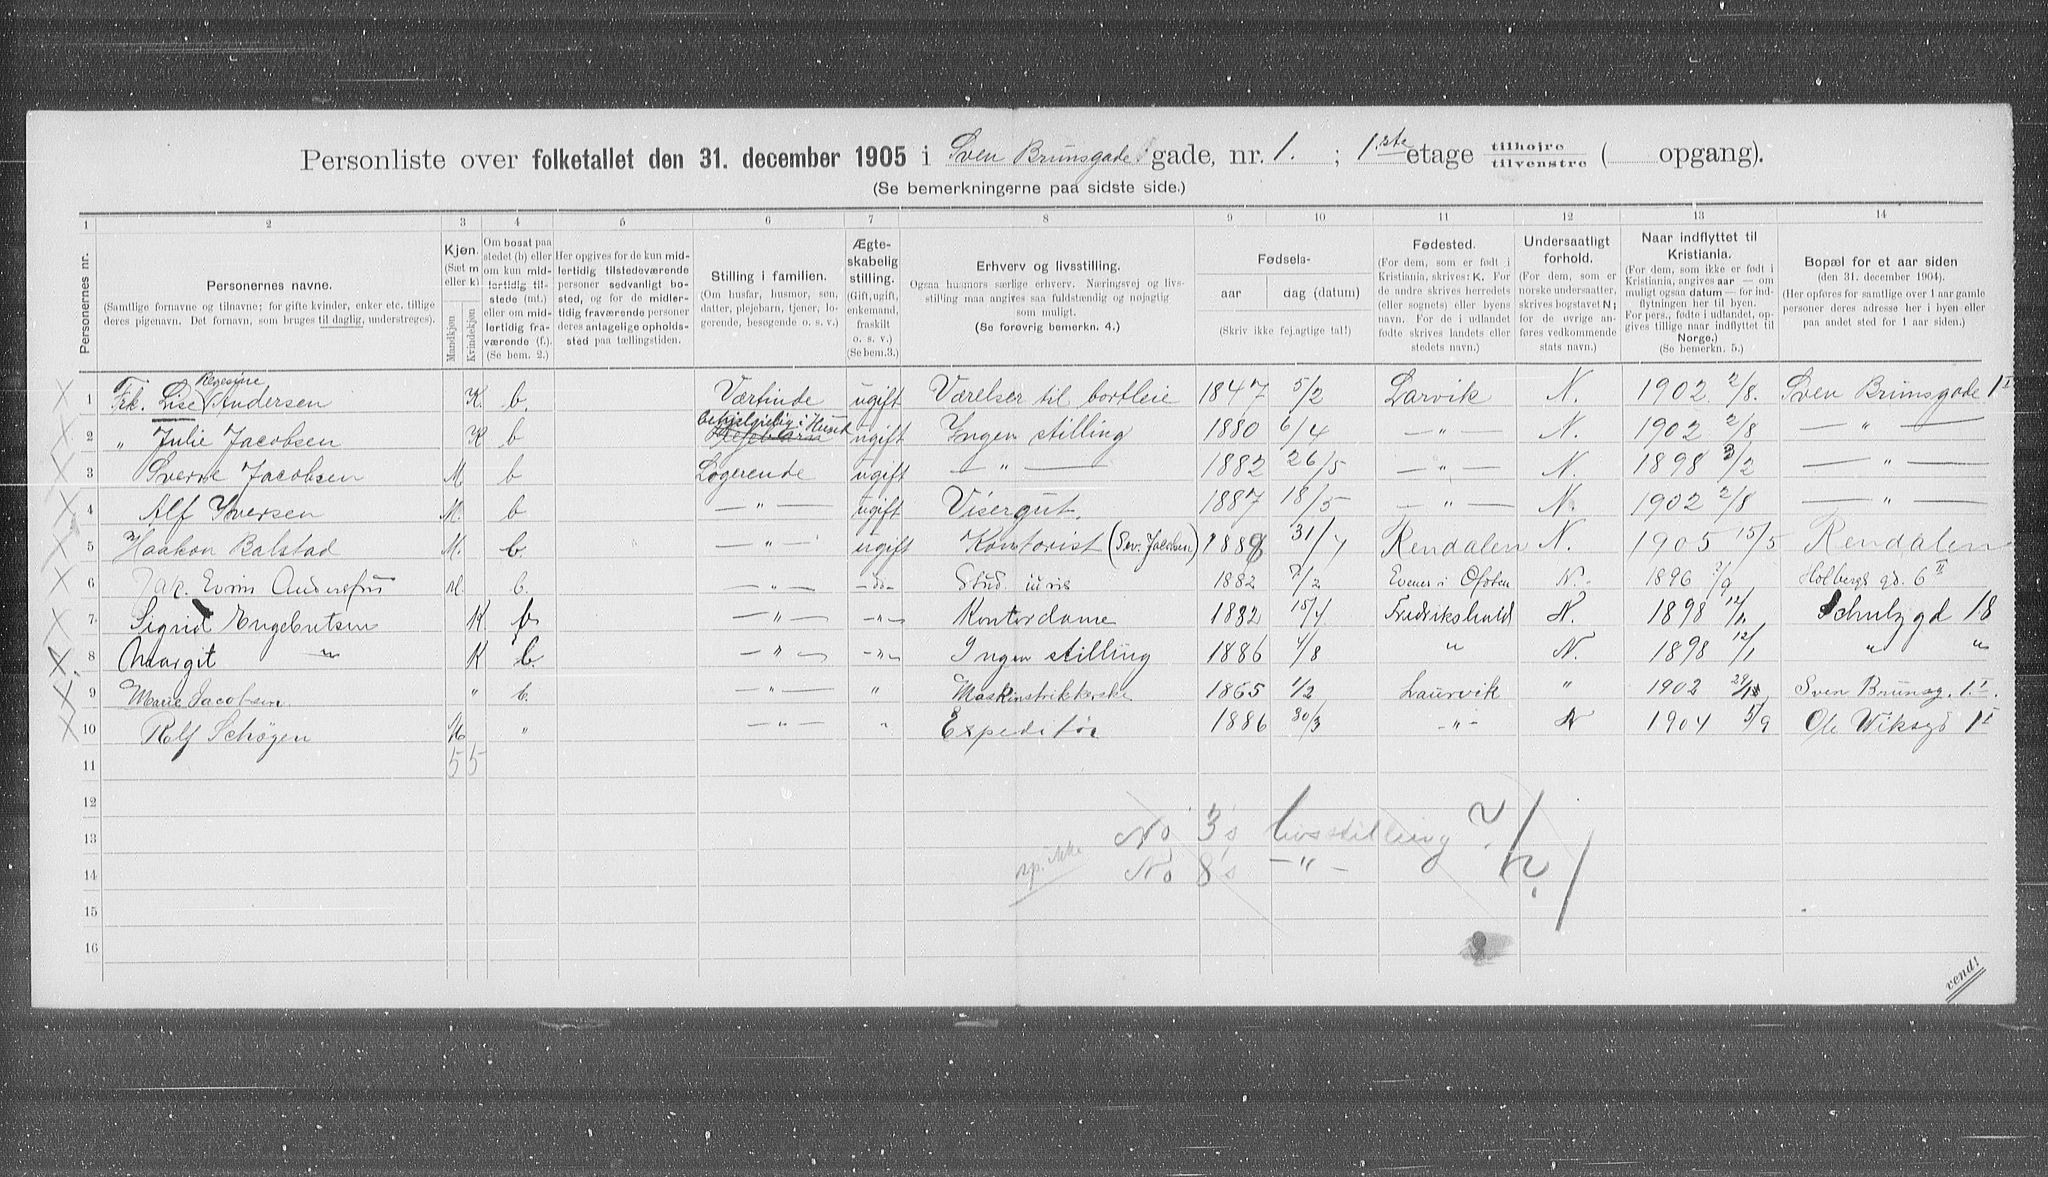 Personliste over folketallet den 31. december 1905 i Sven Brunsgade gade, nr. 1. ; 1ste etage tilhøjre / tilvenstre ( opgang).
(Se bemerkningerne paa sidste side.)
1 2 3 4 5 6 7 8 9 10 11 12 13 14
Personernes nr.
Personernes navne.
(Samtlige fornavne og tilnavne; for gifte kvinder, enker etc. tillige deres pigenavn. Det fornavn, som bruges til daglig, understreges).
Kjøn.
(Sæt m eller k)
Mandkjøn Kvindekjøn
Om bosat paa stedet (b) eller om kun midlertidig tilstede (mt.) eller om midlertidig fraværende (f.). (Se bem. 2.)
Her opgives for de kun midlertidig tilstedeværende personer sedvanligt bosted, og for de midlertidig fraværende personer deres antagelige opholdssted paa tællingstiden.
Stilling i familien.
(Om husfar, husmor, søn, datter, plejebarn, tjener, logerende, besøgende o. s. v.)
Ægteskabelig stilling.
(Gift, ugift, enkemand, fraskilt o. s. v.)
(Se bem. 3.)
Erhverv og livsstilling.
Ogsaa husmors særlige erhverv. Næringsvej og livsstilling maa angives saa fuldstændig og nøjagtig som muligt.
(Se forøvrig bemerkn. 4.)
Fødsels-
aar dag (datum)
(Skriv ikke fejlagtige tal!)
Fødested.
(For dem, som er født i Kristiania, skrives: K. For de andre skrives herredets (eller sognets) eller byens navn. For de i udlandet fødte skrives landets eller stedets navn.)
Undersaatligt forhold.
(For dem, som er norske undersaatter, skrives bogstavet N; for de øvrige anføres vedkommende stats navn.)
Naar indflyttet til Kristiania.
(For dem, som ikke er født i Kristiania, angives aar — om muligt ogsaa datum — for indflytningen her til byen. For pers., fødte i udlandet, opgives tillige naar indflyttet til Norge.)
(Se bemerkn. 5.)
Bopæl for et aar siden
(den 31. december 1904).
(Her opføres for samtlige over 1 aar gamle personer deres adresse her i byen eller paa andet sted for 1 aar siden.)
1 Frk. Lise Regesine Andersen K. b. Værtinde ugift Værelser til bortleie 1847 5/2 Larvik N. 1902 2/8. Sven Brunsgade 1 I
2 „ Julie Jacobsen K b behjelpelig i Huset ugift Ingen stilling 1880 6/4 — „ — N. 1902 2/8 — „ —
3 Sverre Jacobsen M b Logerende ugift — „ — 1882 26/5 — „ — N. 1898 3/2 — „ —
4 Alf Iversen M. b — „ — ugift Visergut. 1887 18/5 — „ — N. 1902 2/8 — „ —
5 Haakon Balstad M. b. — „ — ugift Kontorist (Sev. Jacobsen) 1888 31/7 Rendalen N. 1905 15/5 Rendalen
6 M. b. — „ — -do- Stud. iuris 1882 7/2 Evenes i Ofoten N. 1896 1/9 Holbergs gd. 6 II
7 Sigrid Engebretsen K b — „ — - „ - Kontordame 1882 15/4 Fredrikshald N. 1898 12/1 Schulzgd 18
8 Margit „ K b. — „ — - „ - Ingen stilling 1886 4/8 „ N. 1898 12/1 „ „
9 Marie Jacobsen „ b. — „ — „ Maskinstrikkerske 1865 1/2 Laurvik „ 1902 Sven Brunsg. 1. I.
10 Rolf Schøyen M „ — „ — „ Expeditør 1886 30/3 - „ - N 1904 5/9 Ole Viksgd 1 I
11 5 5
12
13 No 3's livsstilling ?
14 sp. ikke No 8's - „ - ?
15
16
vend!